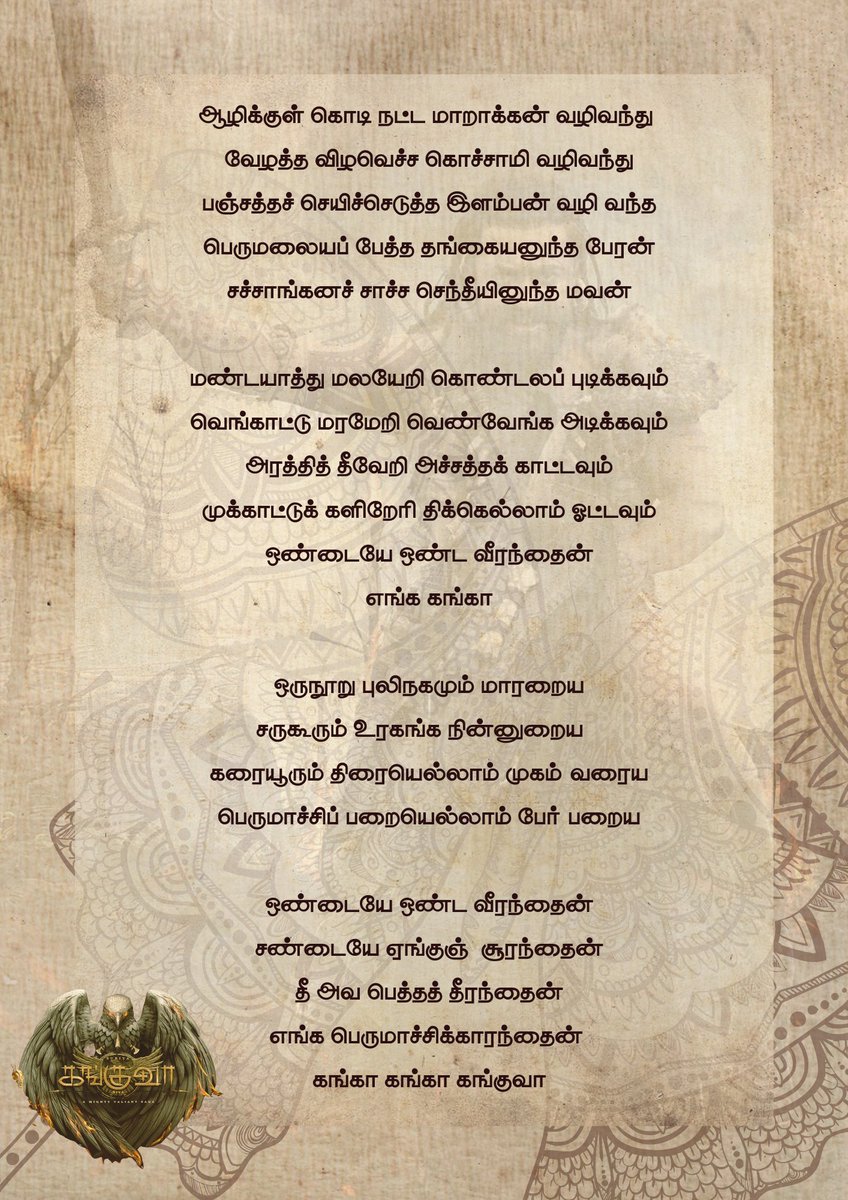 ஆழிக்குள் கொடி நட்ட மாறாக்கன் வழிவந்து
வேழத்த விழவெச்ச கொச்சாமி வழிவந்து
பஞ்சத்தச் செயிச்செடுத்த இளம்பன் வழி வந்த
பெருமலையப் பேத்த தங்கையனுந்த பேரன்
சச்சாங்கனச் சாச்ச செந்தீயினுந்த மவன்
மண்டயாத்து மலயேறி கொண்டலப் புடிக்கவும்
வெங்காட்டு மரமேறி வெண்வேங்க அடிக்கவும்
அரத்தித் தீவேறி அச்சத்தக் காட்டவும்
முக்காட்டுக் களிறேரி திக்கெல்லாம் ஓட்டவும்
ஒண்டையே ஒண்ட வீரந்தைன்
எங்க கங்கா
ஒருநூறு புலிநகமும் மாரறைய
சருகூரும் உரகங்க நின்னுறைய
கரையூரும் திரையெல்லாம் முகம் வரைய
பெருமாச்சிப் பறையெல்லாம் பேர் பறைய
ஒண்டையே ஒண்ட வீரந்தைன்
சண்டையே ஏங்குஞ் சூரந்தைன்
தீ அவ பெத்தத் தீரந்தைன்
எங்க பெருமாச்சிக்காரந்தைன்
கங்கா கங்கா கங்குவா
கங்குவா
A MIGHTY VALIANT SAGA